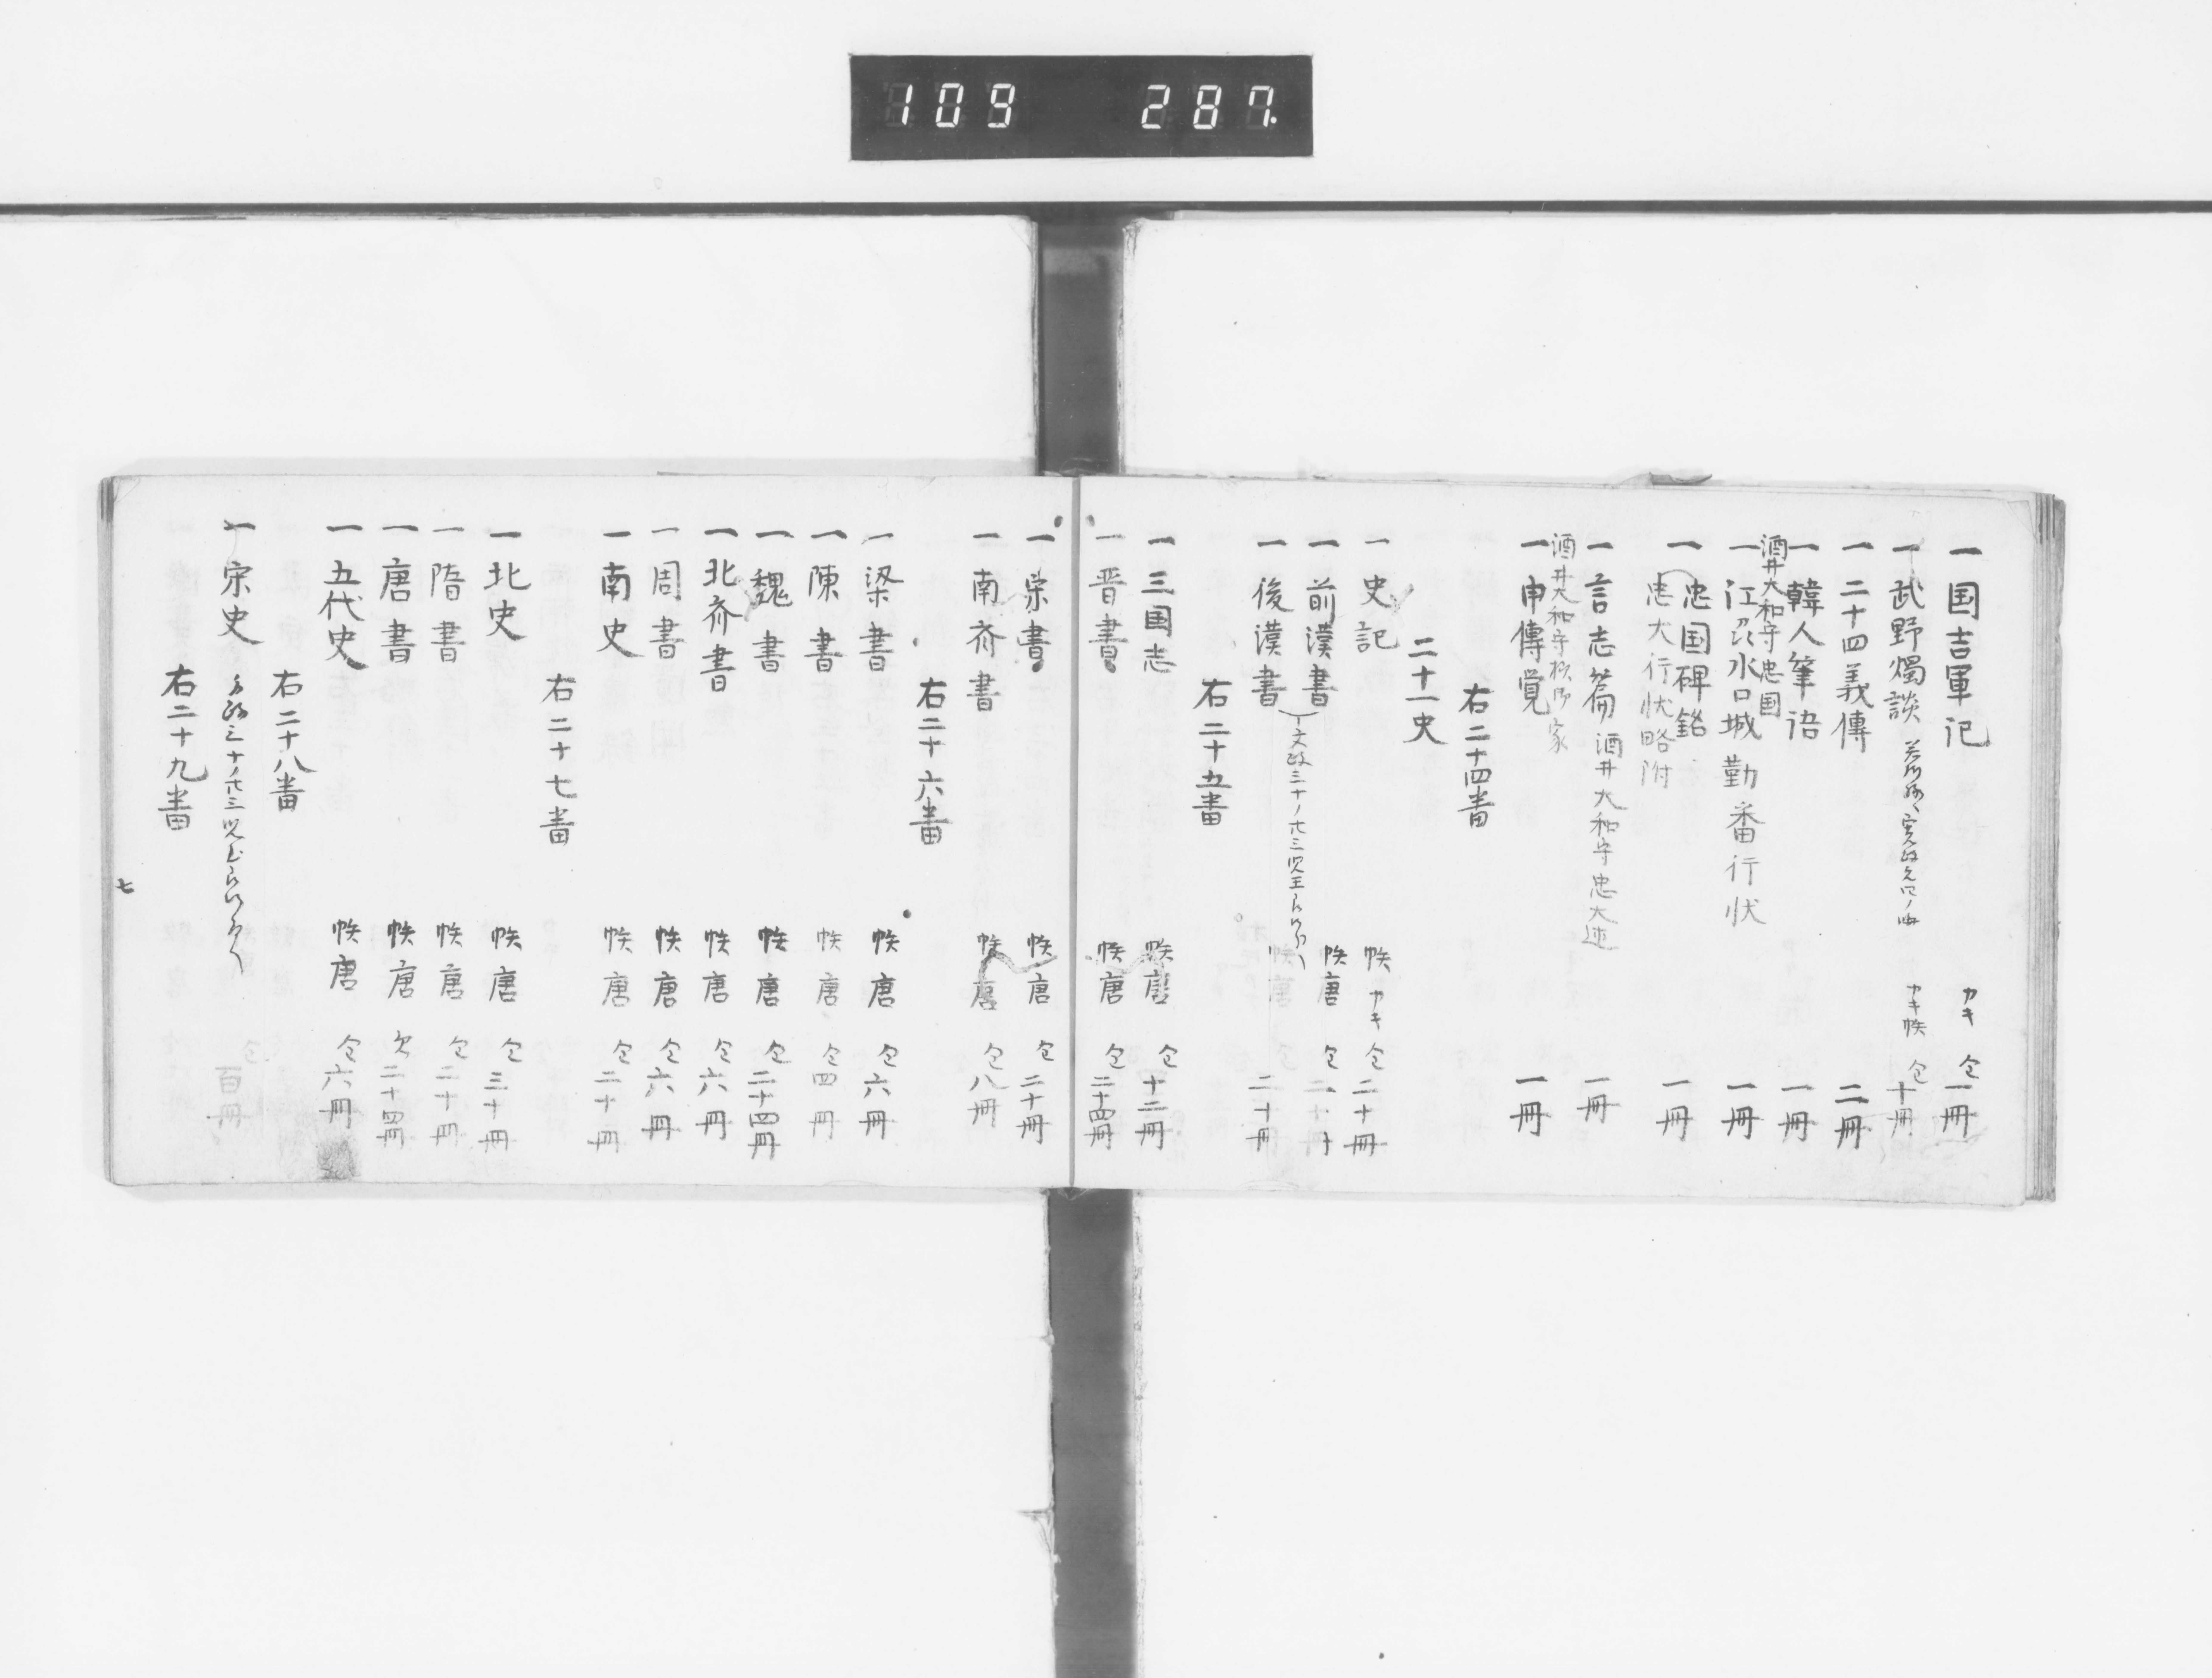 109 287.
一国吉軍記 カキ 仝 一冊
一武野燭談 カキ 帙 仝 十冊
一二十四義傳 二冊
一韓人筆語 一冊
酒井大和守忠国
一江刕水口城勤番行状 一冊
一忠国碑銘 一冊
忠大行状略附
一言志篇 酒井大和守忠大述 一冊
酒井大和守 家
一申傳覚 一冊
右二十四番
二十一史
一史記 帙 カキ 仝 二十冊
一前漢書 帙 唐 仝 二十冊
文政三十ノ廿三
一後漢書 帙 唐 仝 二十冊
右二十五番
一三国志 帙 唐 仝 十二冊
一晋書 帙 唐 仝 二十四冊
一宋書 帙 唐 仝 二十冊
一南斉書 帙 唐 仝 八冊
右二十六番
一梁書 帙 唐 仝 六冊
一陳書 帙 唐 仝 四冊
一魏書 帙 唐 仝 二十四冊
一北斉書 帙 唐 仝 六冊
一周書 帙 唐 仝 六冊
一南史 帙 唐 仝 二十冊
右二十七番
一北史 帙 唐 仝 三十冊
一隋書 帙 唐 仝 二十冊
一唐書 帙 唐 欠 二十四冊
一五代史 帙 唐 仝 六冊
右二十八番
一宋史 仝 百冊
右二十九番
七